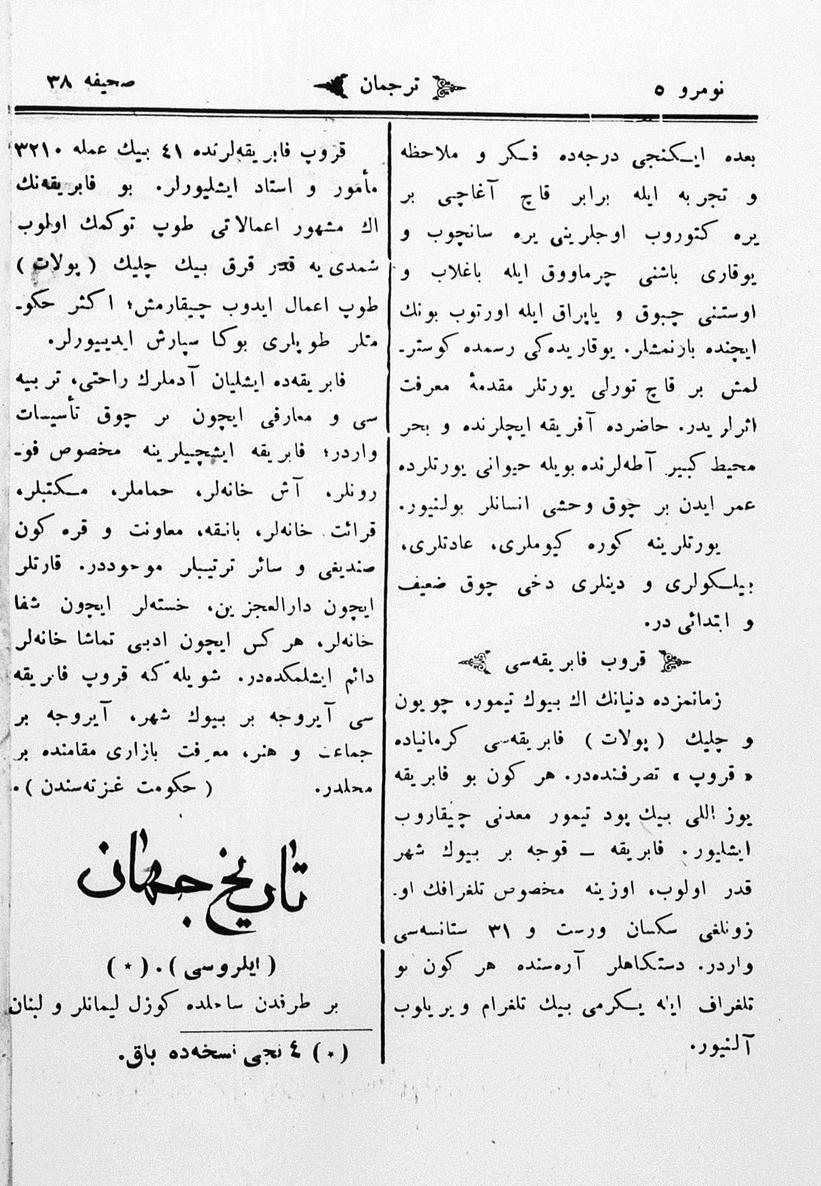 نومرو ٥
ترجمان
صحيفه ٣٨
بعده ايكنجى درجه‌ده فكر و ملاحظه
و تجربه ايله برابر قاچ آغاچى بر
يره كتوروب اوجلرينى يره سانچوب و
يوقارى باشنى چرماووق ايله باغلاب و
اوستنى چبوق و ياپراق ايله اورتوب بونك
ايچنده بارنمشلر. يوقاريده‌كى رسمده كوستر-
لمش بر قاچ تورلى يورتلر مقدمهٔ معرفت
اثرلريدر. حاضرده آفريقه ايچلرنده و بحر
محيط كبير آطه‌لرنده بويله حيوانى يورتلرده
عمر ايدن بر چوق وحشى انسانلر بولنيور.
يورتلرينه كوره كيوملرى، عادتلرى،
بيلكولرى و دينلرى دخى چوق ضعيف
و ابتدائى در.
قروب فابريقه‌سى
زمانمزده دنيانك اك بيوك تيمور، چويون
و چليك (پولات) فابريقه‌سى كرمانياده
«قروپ» تصرفنده‌در. هر كون بو فابريقه
يوز اللى بيك پود تيمور معدنى چيقاروب
ايشليور. فابريقه – قوجه بر بيوك شهر
قدر اولوب، اوزينه مخصوص تلغرافك او-
زونلغى سكسان ورست و ٣١ ستانسه‌سى
واردر. دستكاهلر آره‌سنده هر كون بو
تلغراف ايله يكرمى بيك تلغرام ويريلوب
آلنيور.
قروپ فابريقه‌لرنده ٤١ بيك عمله ٣٢١٠
مأمور و استاد ايشليورلر. بو فابريقه‌نك
اك مشهور اعمالاتى طوپ توكمك اولوب
شمدى يه قدر قرق بيك چليك (پولات)
طوپ اعمال ايدوب چيقارمش؛ اكثر حكو-
متلر طوپلرى بوكا سپارش ايدييورلر.
فابريقه‌ده ايشليان آدملرك راحتى، تربيه
سى و معارفى ايچون بر چوق تأسيسات
واردر؛ فابريقه ايشچيلرينه مخصوص فو-
رونلر، آش خانه‌لر، حماملر، مكتبلر،
قرائت خانه‌لر، بانقه، معاونت و قره كون
صنديغى و سائر ترتيبلر موجوددر. قارتلر
ايچون دارالعجزين، خسته‌لر ايچون شفا
خانه‌لر، هر كس ايچون ادبى تماشا خانه‌لر
دائم ايشلمكده‌در. شويله كه قروپ فابريقه
سى آيروجه بر بيوك شهر، آيروجه بر
جماعت و هنر، معرفت بازارى مقامنده بر
محلدر. (حكومت غزته‌سندن).
تاريخ جهان
(ايلروسى). (*)
بر طرفدن ساحلده كوزل ليمانلر و لبنان
(*) ٤ نجى نسخه‌ده باق.